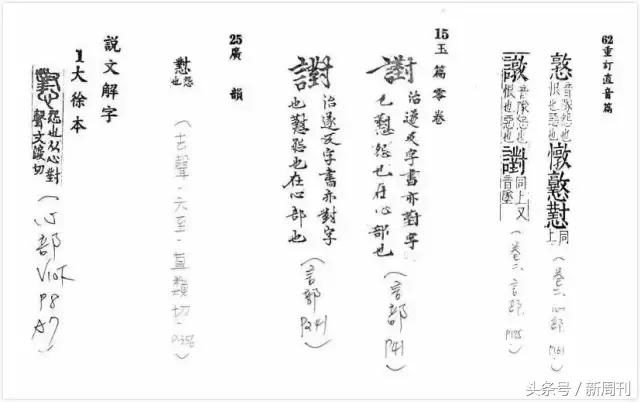 62重訂直音篇
憝音隊怨也恨也惡也憞憝懟同上
(卷六、心部、P161)
譈音隊怨也恨也惡也譵同上又音墜
(卷六、言部、P125)
15玉篇零卷
譵治遂反字書亦對字
也懟怨也在心部也(言部P41)
譵治遂反字書亦對字
也懟怨也在心部也(言部P241)
25廣韻
懟怨也(去聲·六至·直類切·P356)
說文解字
1大徐本
怨也从心對
聲丈淚切(心部V10下P8A7)
头条号/新周刊